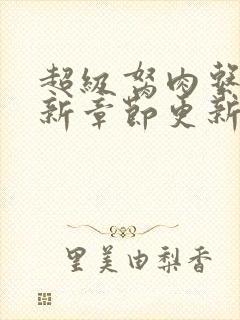 超級弩肉繫
新章節更新
里美由梨香